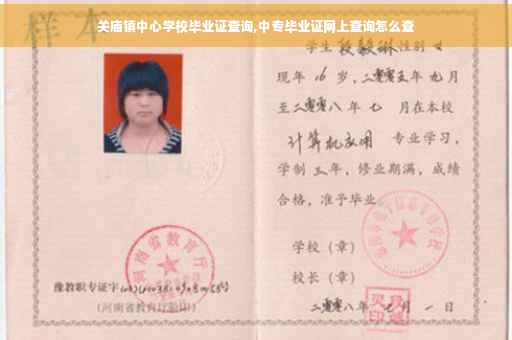 关庙镇中心学校毕业证查询,中专毕业证网上查询怎么查
样本
学生 段毅琳 性别 女
现年 16 岁,二零零五年 九月
至二零零八年 七 月在本校
计算机应用 专业学习,
学制 三年,修业期满,成绩
合格,准予毕业
学校(章)
校长(章)
二零零八年 七月 一 日
河南省教育厅
豫教职专证字
(河南省教育厅验印)